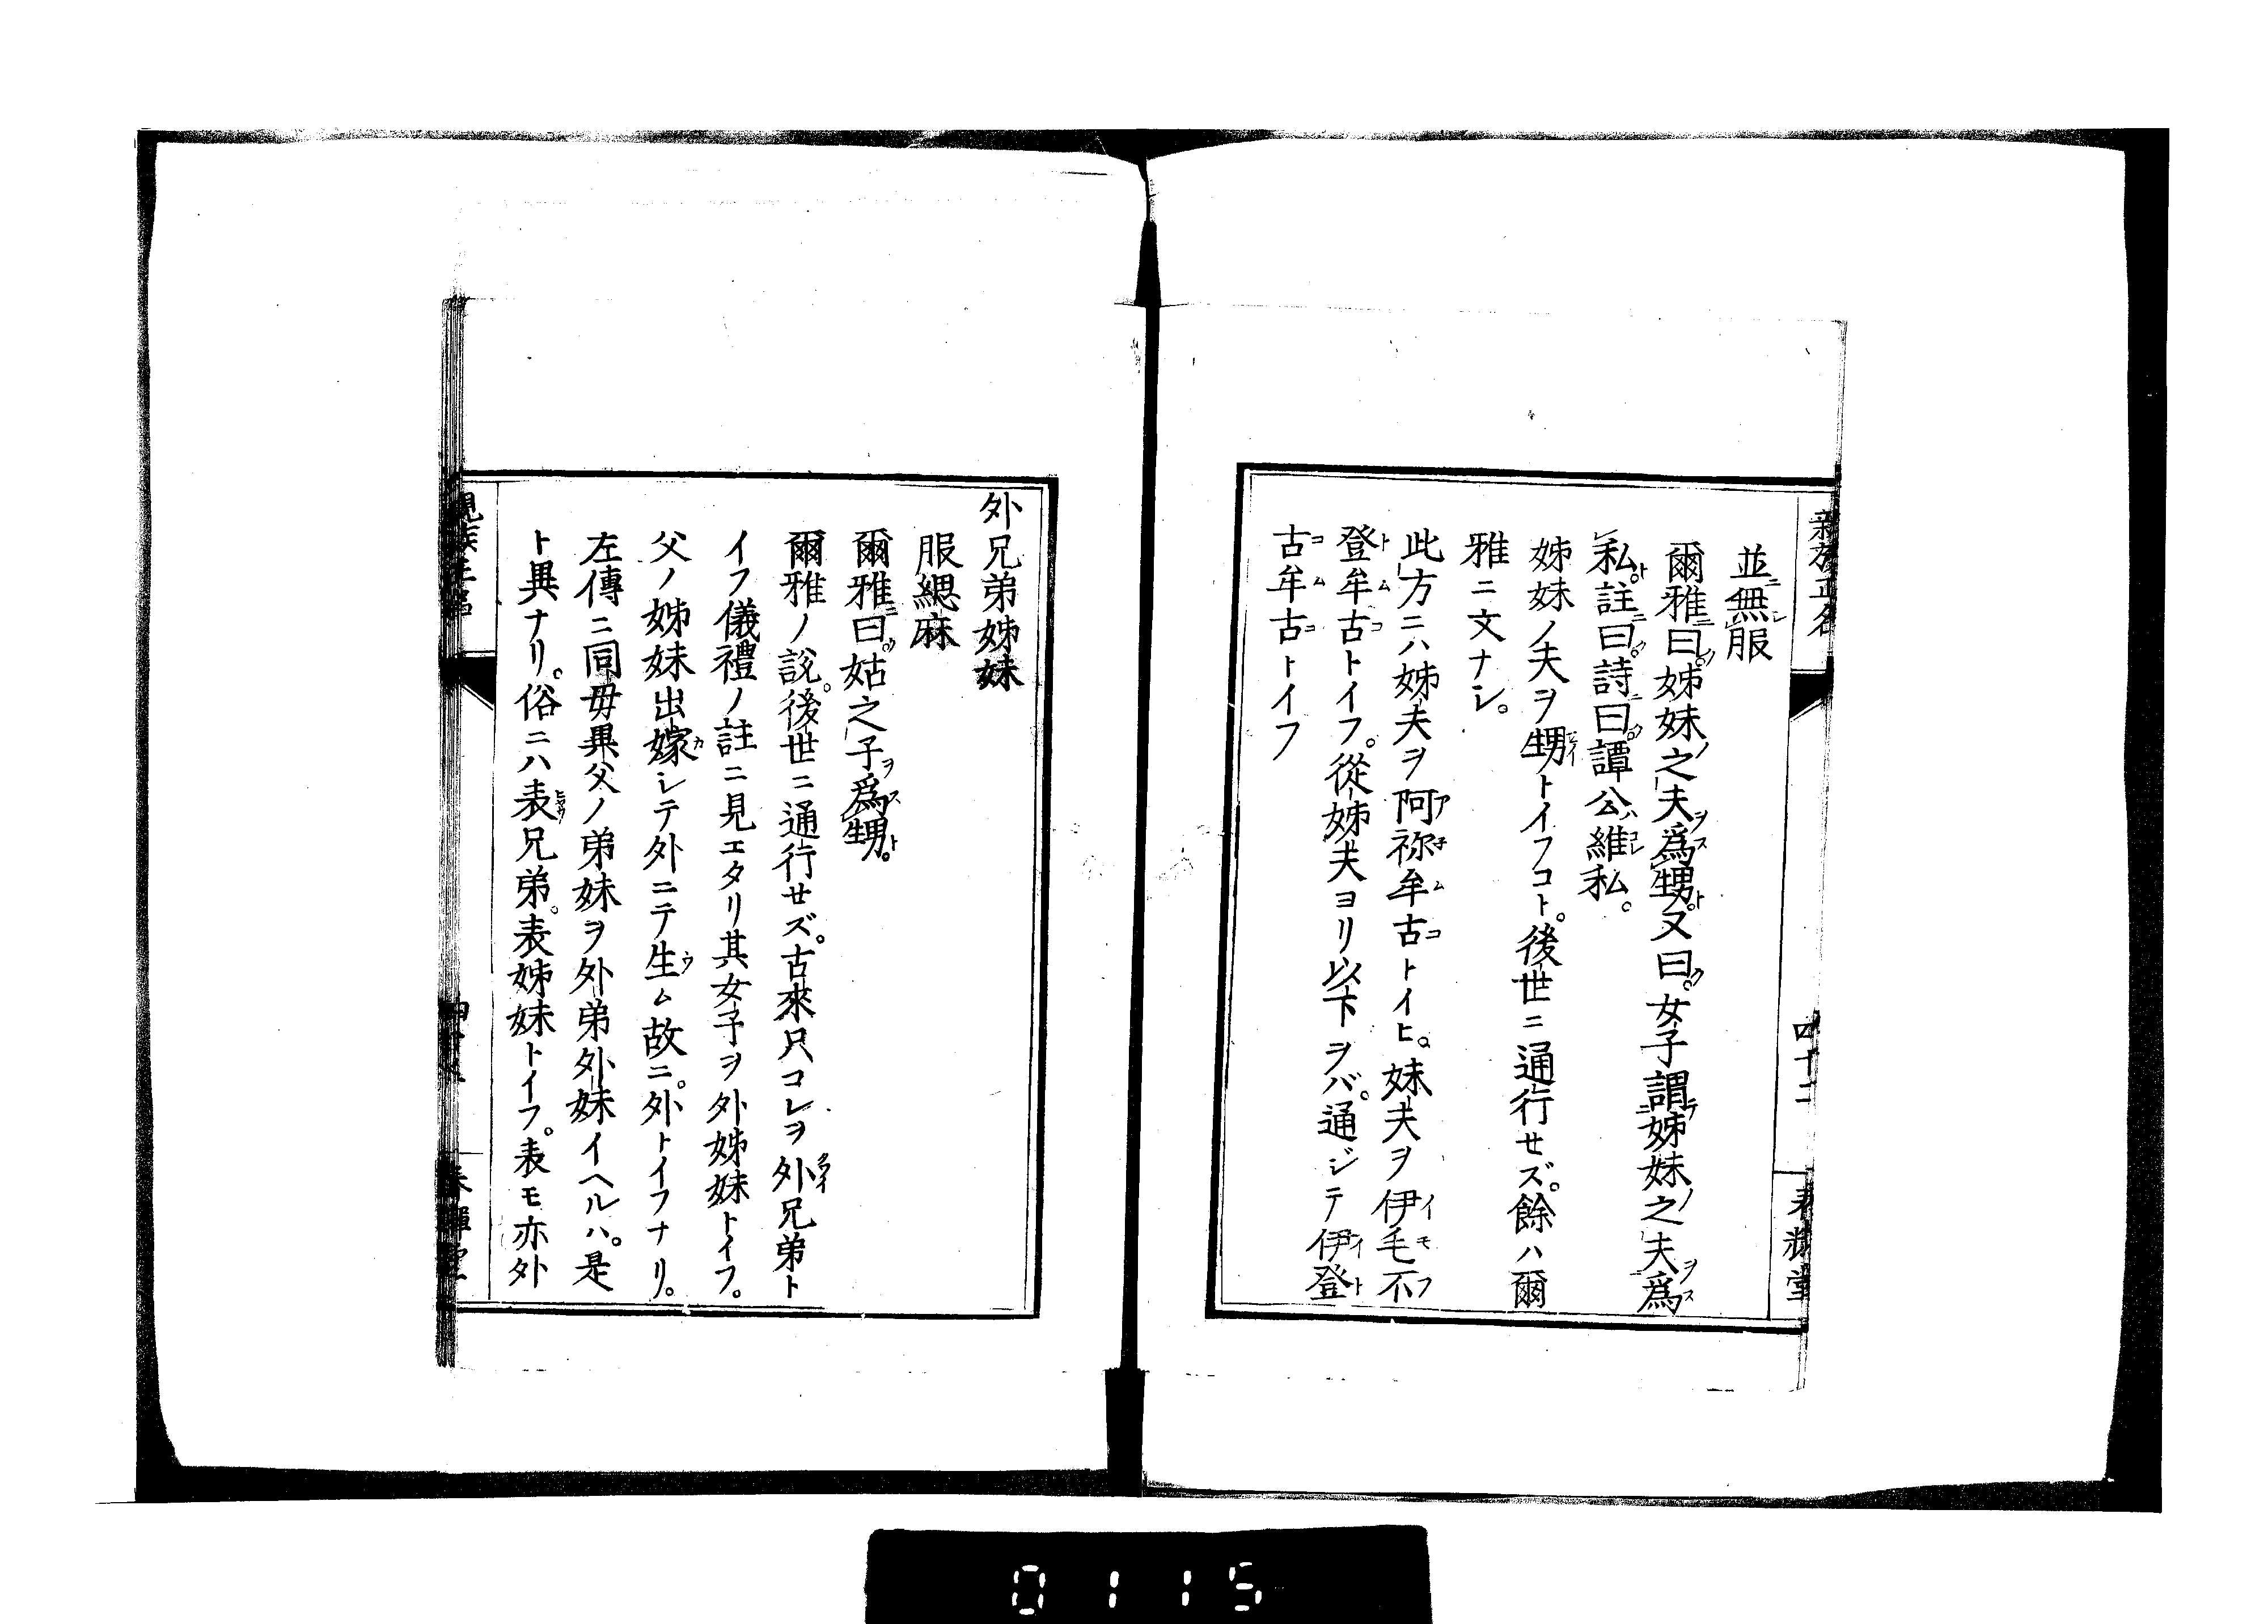 親族正名
四十二
並無服
爾雅曰。姊妹之夫爲甥。又曰。女子謂姊妹之夫爲
私。註曰。詩曰。譚公維私。
姊妹ノ夫ヲ甥トイフコト。後世ニ通行せズ。餘ハ爾
雅ニ文ナシ。
此方ニハ姊夫ヲ阿祢牟古トイヒ。妹夫ヲ伊毛不
登牟古トイフ。從姊夫ヨリ以下ヲバ。通ジテ伊登
古牟古トイフ
外兄弟姊妹
服緦麻
爾雅曰。姑之子爲甥。
爾雅ノ說。後世ニ通行せズ。古來只コレヲ外兄弟ト
イフ儀禮ノ註ニ見エタリ其女子ヲ外姊妹トイフ。
父ノ姊妹出嫁シテ外ニテ生ム故ニ。外トイフナリ。
左傳ニ同毋異父ノ弟妹ヲ外弟外妹イヘルハ。是
ト異ナリ。俗ニハ表兄弟。表姊妹トイフ。表モ亦外
0115